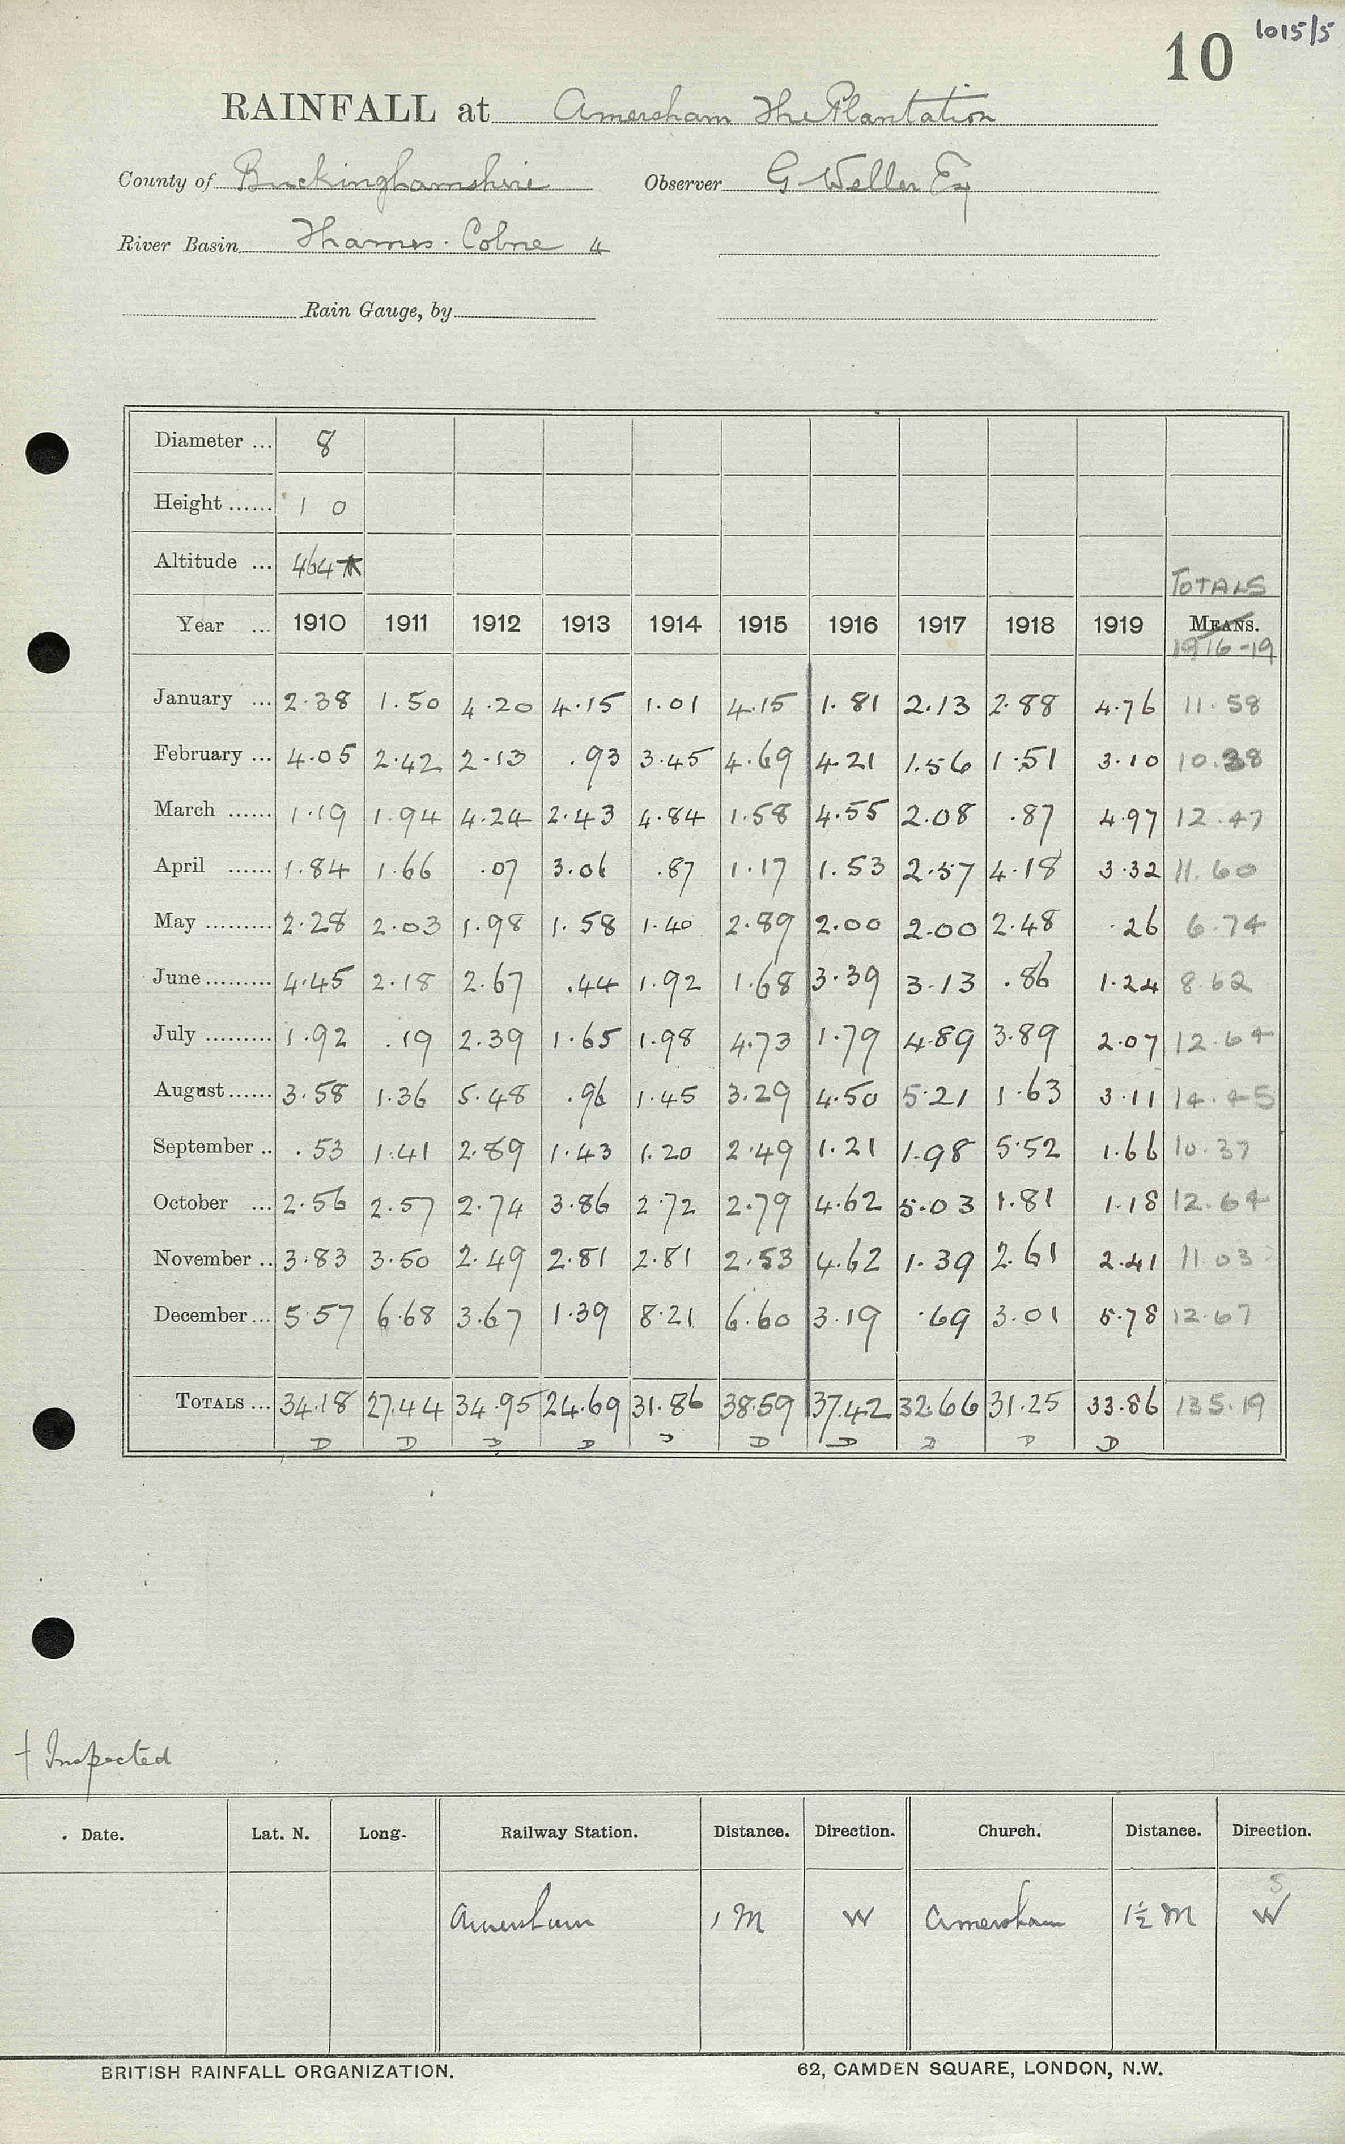 10 1015/5
RAINFALL at Amersham The Plantation
County of Buckinghamshire Observer G Weller Esq
River Basin Thames. Colne 4
Rain Gauge, by
Diameter ... 8
Height ...... 1 0
Altitude ... 464
TOTALS
Year ... 1910 1911 1912 1913 1914 1915 1916 1917 1918 1919 MEANS.
1916-19
January ... 2.38 1.50 4.20 4.15 1.01 4.15 1.81 2.13 2.88 4.76 11.58
February ... 4.05 2.42 2.13 .93 3.45 4.69 4.21 1.56 1.51 3.10 10.38
March ...... 1.19 1.94 4.24 2.43 4.84 1.58 4.55 2.08 .87 4.97 12.47
April ...... 1.84 1.66 .07 3.06 .87 1.17 1.53 2.57 4.18 3.32 11.60
May ......... 2.28 2.03 1.98 1.58 1.40 2.89 2.00 2.00 2.48 .26 6.74
June ......... 4.45 2.18 2.67 .44 1.92 1.68 3.39 3.13 .86 1.24 8.62
July ......... 1.92 .19 2.39 1.65 1.98 4.73 1.79 4.89 3.89 2.07 12.64
August ...... 3.58 1.36 5.48 .96 1.45 3.29 4.50 5.21 1.63 3.11 14.45
September .. .53 1.41 2.89 1.43 1.20 2.49 1.21 1.98 5.52 1.66 10.37
October ... 2.56 2.57 2.74 3.86 2.72 2.79 4.62 5.03 1.81 1.18 12.64
November .. 3.83 3.50 2.49 2.81 2.81 2.53 4.62 1.39 2.61 2.41 11.03
December ... 5.57 6.68 3.67 1.39 8.21 6.60 3.19 .69 3.01 5.78 12.67
TOTALS ... 34.18 27.44 34.95 24.69 31.86 38.59 37.42 32.66 31.25 33.86 135.19
D D D D D D D D D D
† Inspected
Date. Lat. N. Long. Railway Station. Distance. Direction. Church. Distance. Direction.
S
Amersham 1 M W Amersham 1½ M W
BRITISH RAINFALL ORGANIZATION. 62, CAMDEN SQUARE, LONDON, N.W.